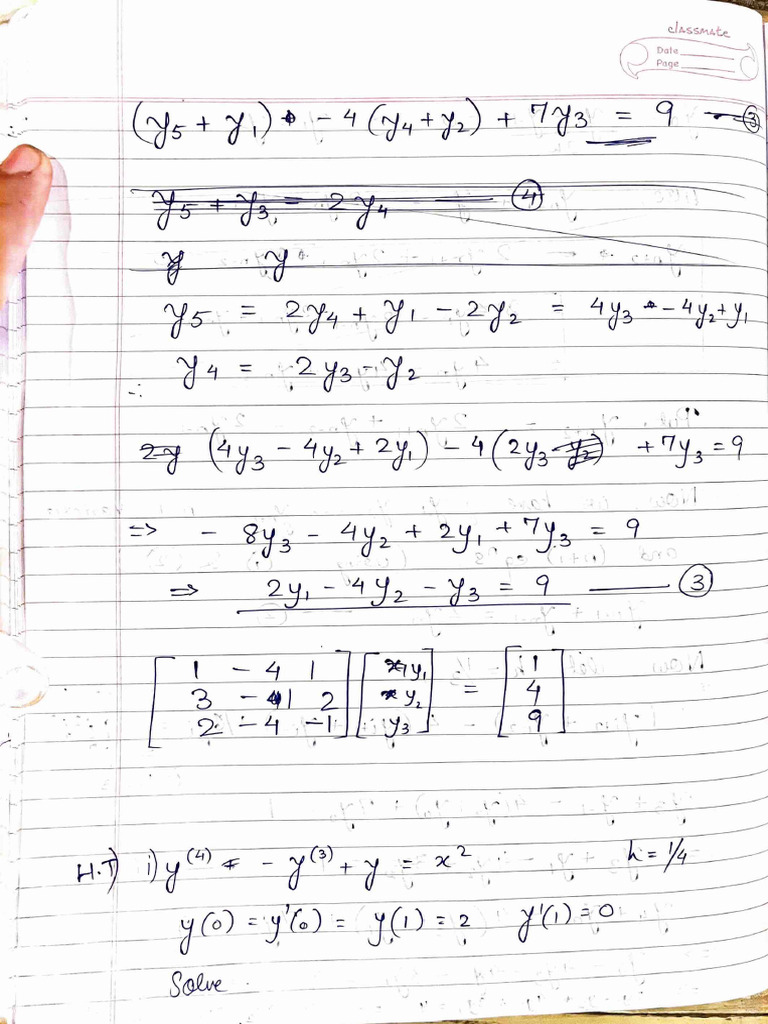 classmate
Date
Page
(y₅ + y₁) - 4(y₄ + y₂) + 7y₃ = 9 — ③
y₅ + y₃ = 2y₄ — ④
y y
y₅ = 2y₄ + y₁ - 2y₂ = 4y₃ - 4y₂ + y₁
∴ y₄ = 2y₃ - y₂
2y (4y₃ - 4y₂ + 2y₁) - 4(2y₃ - y₂) + 7y₃ = 9
⇒ - 8y₃ - 4y₂ + 2y₁ + 7y₃ = 9
⇒ 2y₁ - 4y₂ - y₃ = 9 — ③
[1 -4 1] [y₁] [1]
[3 -1 2] [y₂] = [4]
[2 -4 -1] [y₃] [9]
H.T) i) y⁽⁴⁾ - y⁽³⁾ + y = x² h = 1/4
y(0) = y'(0) = y(1) = 2 y'(1) = 0
Solve